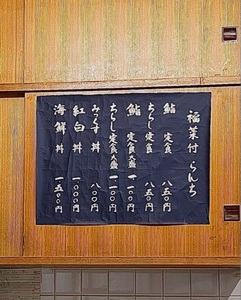 福菜付 らんち
鮨 定食 八五〇円
ちらし定食 八五〇円
鮨 定食大盛 一一〇〇円
ちらし定食大盛 一一〇〇円
みっくす丼 八〇〇円
紅白丼 一〇〇〇円
海鮮丼 一五〇〇円